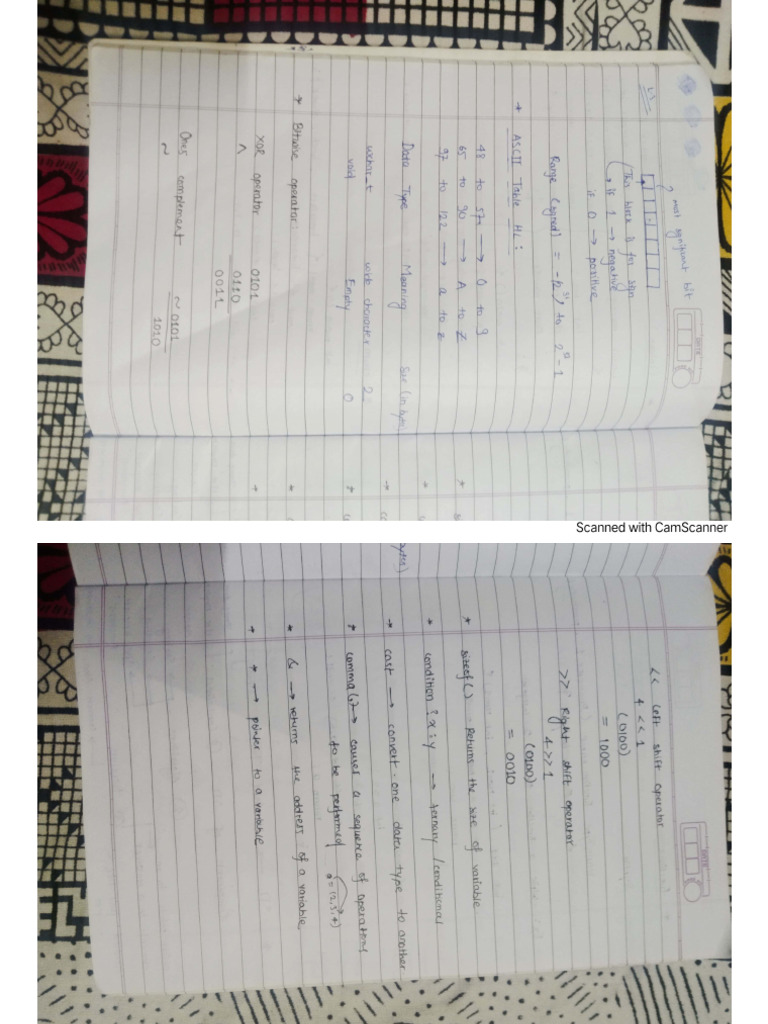 most significant bit
This block is for sign
If 1 → negative
if 0 → positive
Range (signed) = -(2³¹) to 2³¹-1
* ASCII Table
48 to 57 → 0 to 9
65 to 90 → A to Z
97 to 122 → a to z
Data Type Meaning Size (in bytes)
wchar_t wide character 2
void Empty 0
* Bitwise operator:
XOR operator 0101
^ 0110
0011
Ones complement ~ 0101
~ 1010
Scanned with CamScanner
<< Left shift operator
4 << 1
(0100)
= 1000
>> Right shift operator
4 >> 1
(0100)
= 0010
* sizeof() Returns the size of variable
* condition ? x : y → ternary / conditional
→ cast → convert one data type to another
* comma (,) → causes a sequence of operations
to be performed a = (2,3,4)
* & → returns the address of a variable
* * → pointer to a variable